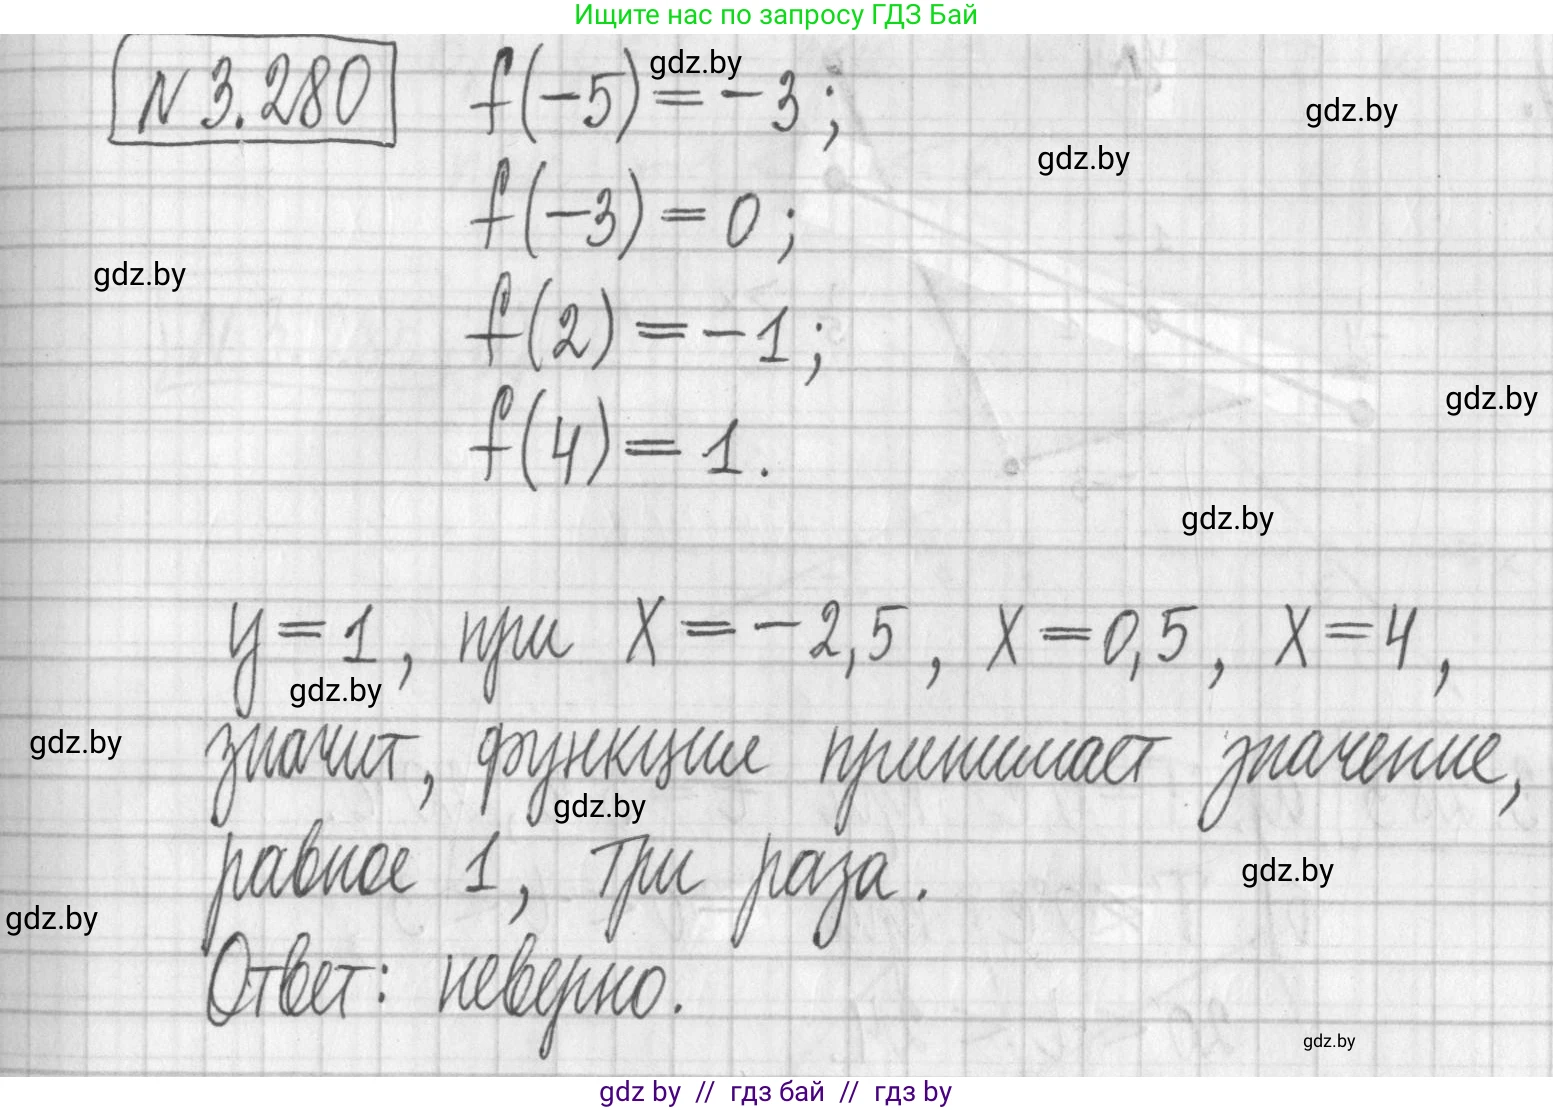 Ищите нас по запросу ГДЗ Бай
N 3.280
f(-5) = -3;
gdz.by
gdz.by
gdz.by
f(-3) = 0;
gdz.by
f(2) = -1;
gdz.by
f(4) = 1.
gdz.by
y = 1, при X = -2,5, X = 0,5, X = 4,
gdz.by
gdz.by
значит, функция принимает значение,
gdz.by
равное 1, три раза.
gdz.by
gdz.by
Ответ: неверно.
gdz.by
gdz by // гдз бай // гдз by